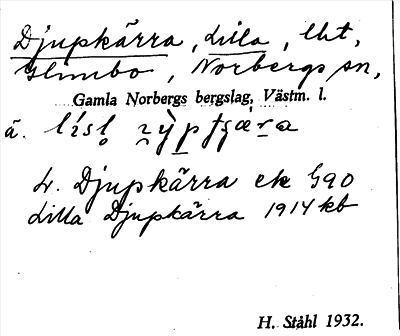 Djupkärra, Lilla, lht,
Norbergs sn,
Gamla Norbergs bergslag, Västm. l.
ä.
L. Djupkärra ek G90
Lilla Djupkärra 1914 kb
H. Ståhl 1932.